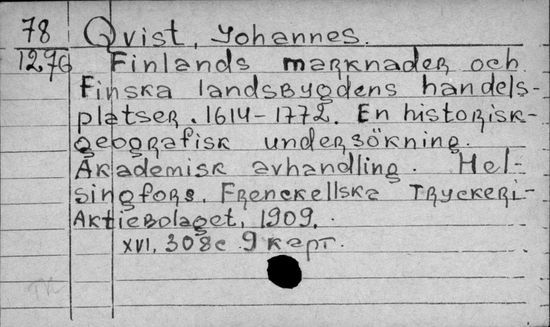 78 Qvist, Johannes.
1276 Finlands marknader och
Finska landsbygdens handels-
platser. 1614-1772. En historisk-
geografisk undersökning.
Akademisk avhandling. Hel-
singfors, Frenckellska Tryckeri-
Aktiebolaget, 1909.
XVI, 308 с. 9 карт.